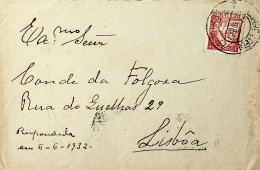 Exᵐᵒ Snr
Conde da Folgosa
Rua do Quelhas 29
Lisbôa
Respondida
em 6-6-1932-